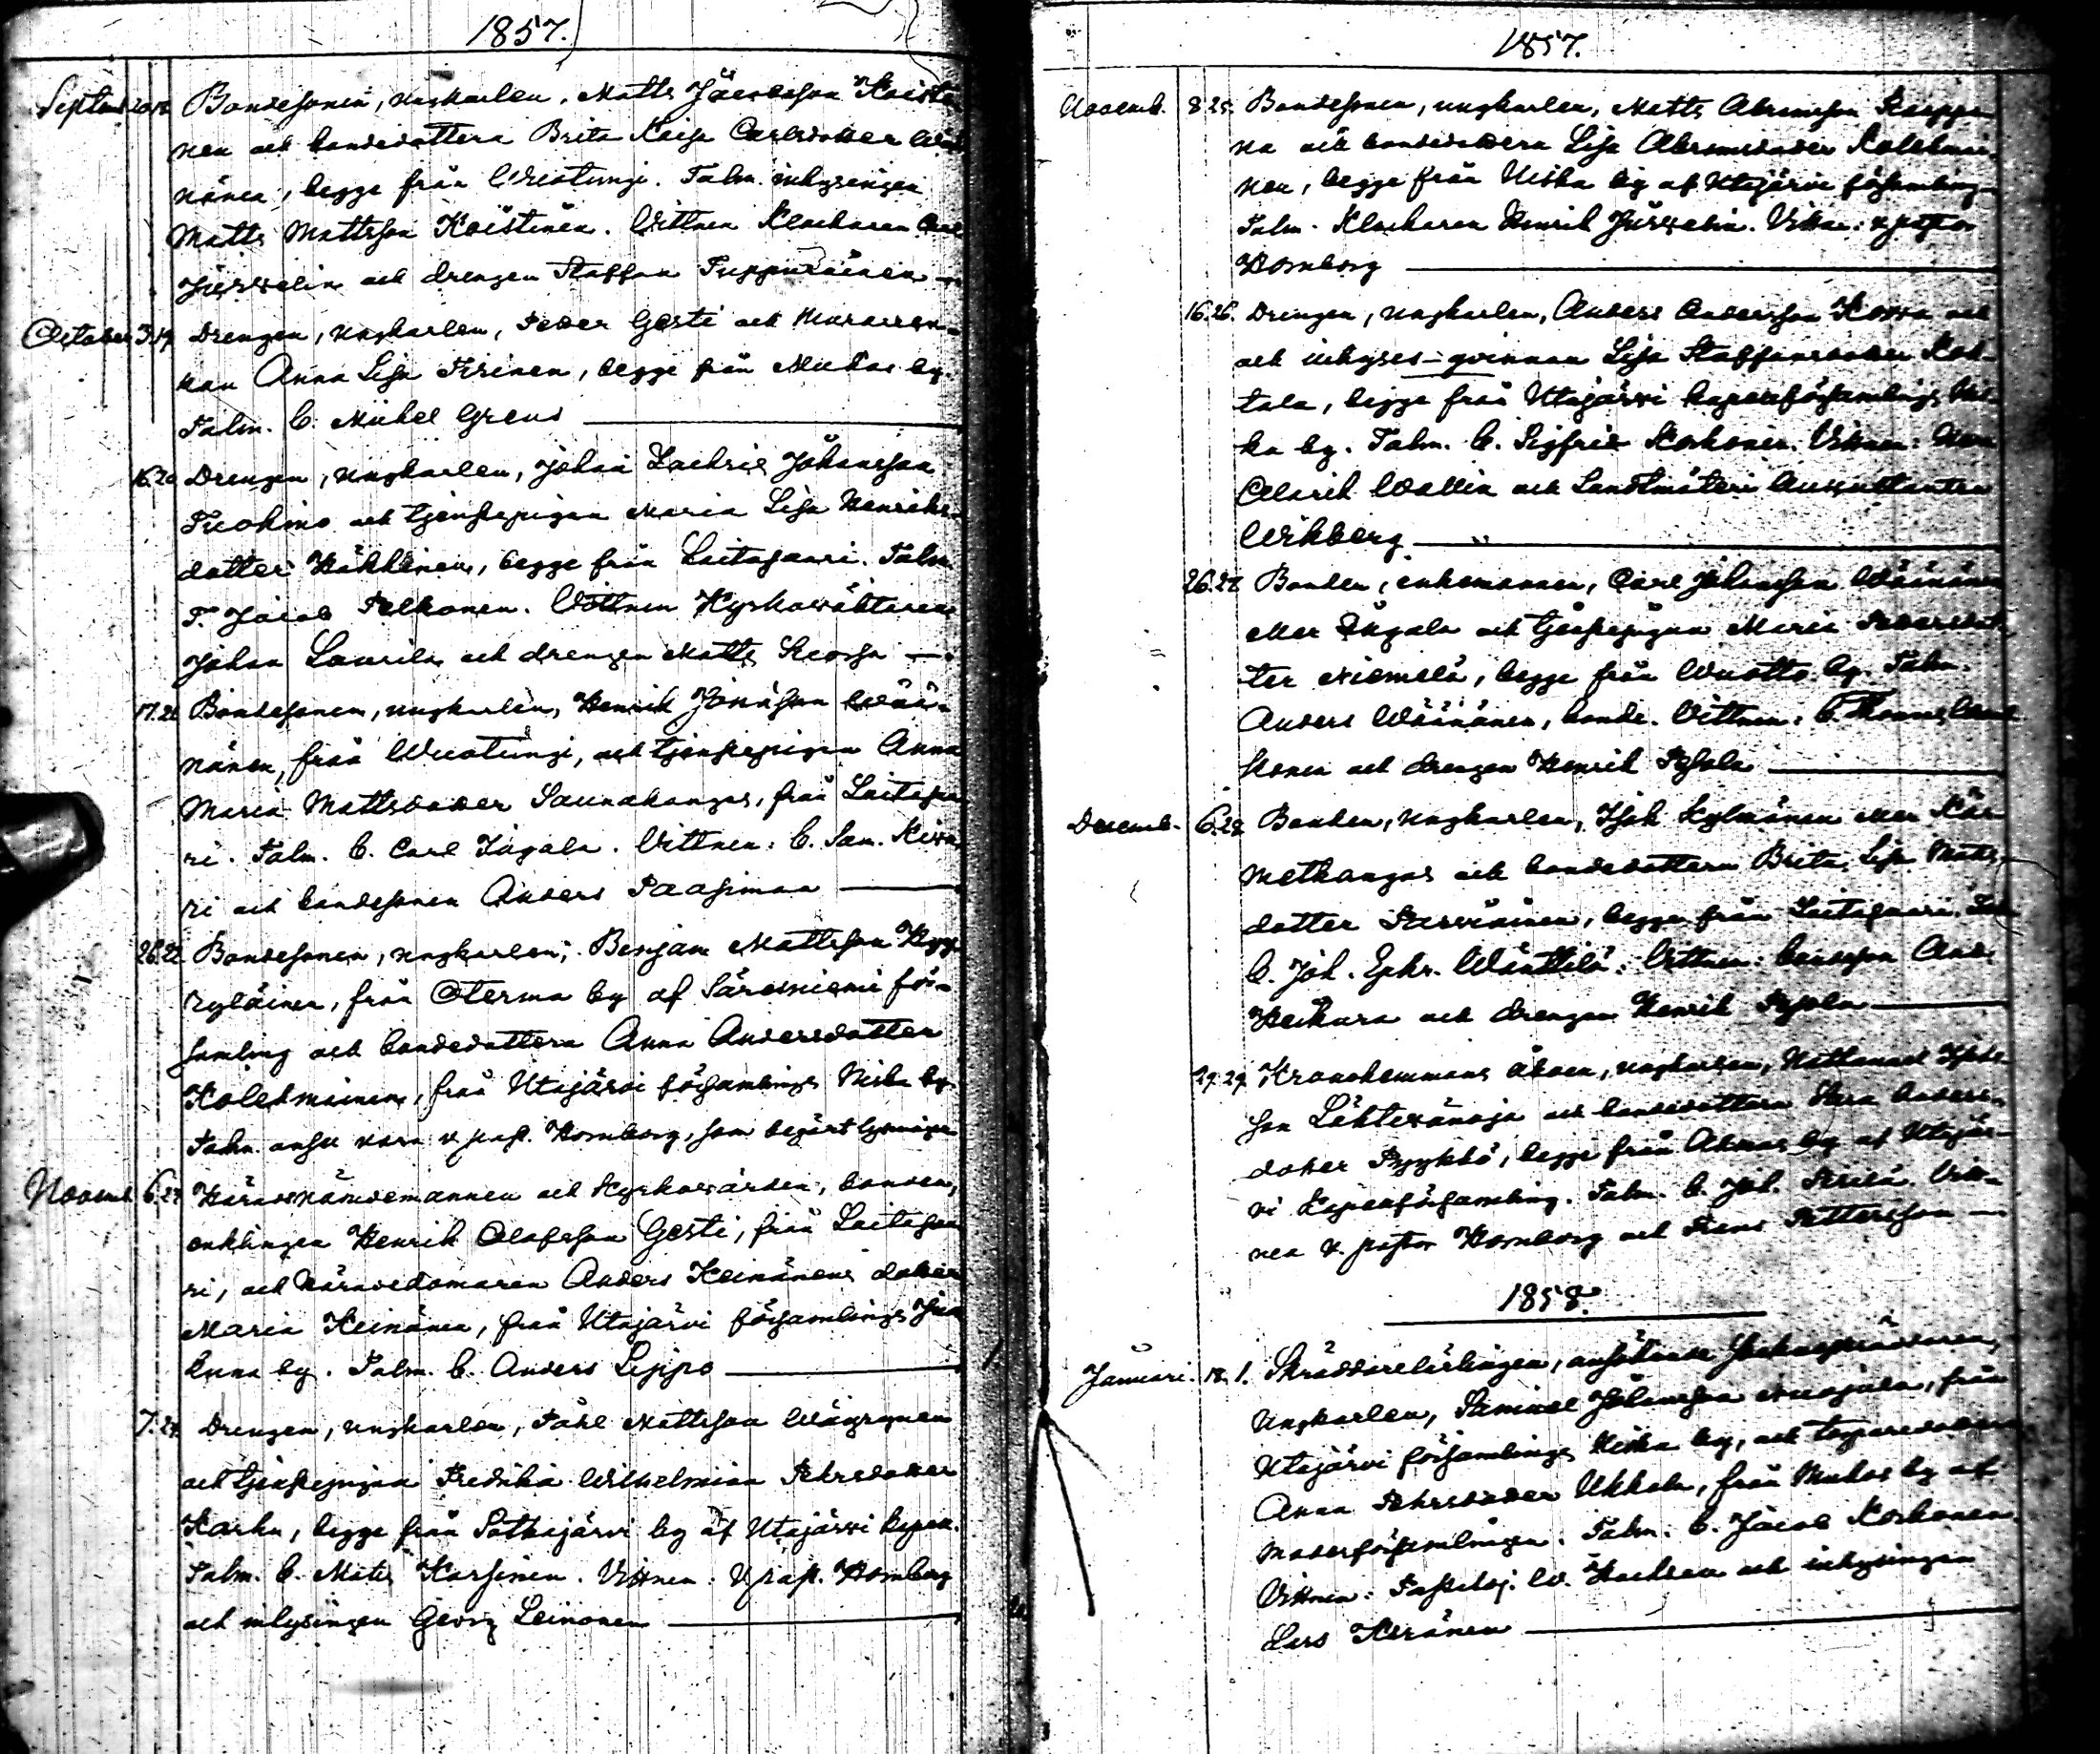 1857.
Septemb. 20.18. Bondesonen, ungkarlen, Matts Jacobsson Koisti-
nen och bondedottern Brita Kaisa Carlsdotter Wää-
nänen, begge från Wuotungi. Talm. inhysingen
Matts Mattsson Koistinen. Vittnen Klockaren Carl
och drengen Staffan Tuppurainen
October 3.19. Drengen, ungkarlen, Peder Gästi och
kan Anna Lisa Piirinen, begge från Muhos by.
Talm. b. Mickel Grens
16.20. Drengen, ungkarlen, Johan Zachris Johansson
Tuohino och tjenstepigan Maria Lisa Henriks-
dotter Häkkinen, begge från Laitasaari. Talm.
T. Jacob Pelkonen. Vittnen Kyrkowäktaren
Johan Laurila och drengen Matts
17.21. Bondesonen, ungkarlen, Henrik Wää-
nänen, från Wuotungi, och tjenstepigan Anna
Maria Mattsdotter Saunakangas, från Laitasaa-
ri. Talm. b. Carl Ingala. Vittnen: b. Sam.
ri och bondesonen Anders Paasimaa
26.22. Bondesonen, ungkarlen, Benjam Mattsson Hyy-
ryläinen, från Oterma by af Säresniemi för-
samling och bondedottern Anna Andersdotter
Kolehmainen, från Utajärvi församlings Niska by.
Talm. anses vara v. past. Hornborg, som begärt lysningen
Novemb. 6.23. Häradsnämdemannen och Kyrkowärden, bonden,
enklingen Henrik Olofsson Gästi, från Laitasaa-
ri, och Häradsdomaren Anders Keinänens dotter
Maria Keinänen, från Utajärvi församlings Juor-
kuna by. Talm. b. Anders Leppo
7.24. Drengen, ungkarlen, Påhl Mattsson Wäyrynen
och tjenstepigan Fredrika Wilhelmina Pehrsdotter
Karhu, begge från Sotkajärvi by af Utajärvi kapell.
Talm. b. Matts Karsinen. Vittnen: v. past. Hornborg
och inhysingen Georg Leinonen
1857.
Novemb. 8.25. Bondesonen, ungkarlen, Matts Abramsson
na och bondedottern Lisa Abramsdotter Kolehmai-
nen, begge från Niska by af Utajärvi församling
Talm. Klockaren Henrik Vittne: v. pastor
Hornborg
16.26. Drengen, ungkarlen, Anders Andersson och
och inhyses-qvinnan Lisa Staffansdotter
tala, begge från Utajärvi kapellförsamlings Nis-
ka by. Talm. b. Sigfrid Korhonen. Vittnen:
Wallin och Landtmäteri Auscultanten
Wikberg
26.27. Bonden, enkemannen, Carl Johansson Wäänänen
eller Ingala och tjenstepigan Maria Pedersdot-
ter Niemelä, begge från Wuotto by. Talm.
Anders Wäänänen, bonde. Vittnen: b.
konen och drengen Henrik Pesola
Decemb. 6.28. Bonden, ungkarlen, Isak Kylmänen eller Kär-
metkangas och bondedottern Brita Lisa Matts-
dotter Parviainen, begge från Laitasaari.
b. Joh. Ephr. Wänttilä. Vittnen: bondeson And.
Heikura och drengen Henrik Pesola
29.29. Kronohemmans åboen, ungkarlen, Nathanael
son Lähtevänoja och bondedottern Anders-
dotter Pyykkö, begge från Ahmas by af Utajär-
vi Kapellförsamling. Talm. b. Joh. Perilä. Vitt-
nen v. pastor Hornborg och Frans Pettersson
1858.
Januari. 18. 1. Skräddarelärlingen,
Ungkarlen, Samuel Johansson från
Utajärvi församlings Niska by, och torparedottern
Anna Pehrsdotter Ukkola, från Muhos by af
Moderförsamlingen. Talm. b. Jacob Korhonen.
Vittnen: och inhysingen
Lars Keränen